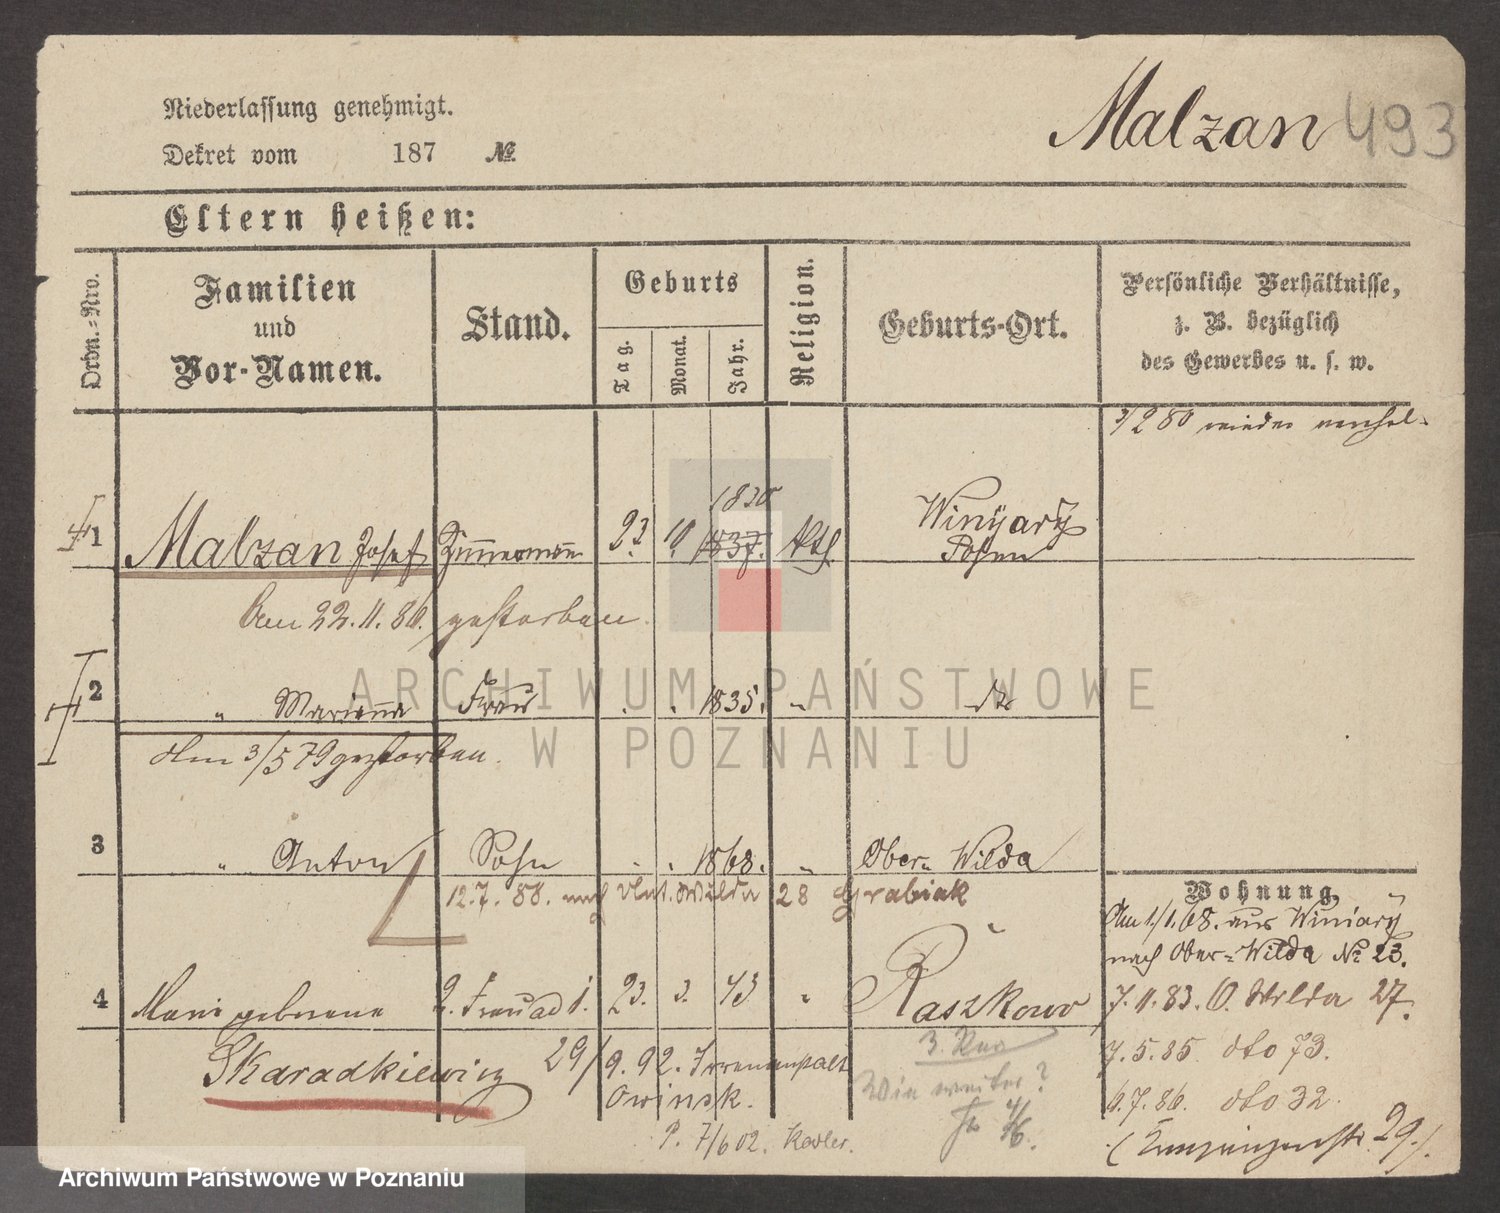 Malzan 493
Niederlassung genehmigt.
Dekret vom 187 №
Eltern heißen:
Ordn.-Nro.
Familien
und
Vor-Namen.
Stand.
Geburts
Tag.
Monat.
Jahr.
Religion.
Geburts-Ort.
Persönliche Verhältnisse,
z. B. bezüglich
des Gewerbes u. s. w.
3/2 80 wieder verehel.
1830
1 Malzan Josef Zimmermann 23. 10. 1837. kth Winÿarÿ
Posen
Am 22.11.86. gestorben.
2 " Marianna Frau . . 1835. " dto
Am 3/5 79 gestorben.
3 " Anton Sohn . . 1868. " Ober- Wilda
12.7.88. nach Unt. Wilda 28 Grabiak
Wohnung.
Am 1/1.68. aus Winiarÿ
nach Ober-Wilda № 23.
4 Marie geborene 2. Frau ad 1. 23. 3. 43 " Raszkow
7.11.83. O. Wilda 27.
Skaradkiewicz 29/9.92. Irrenanstalt
Owinsk.
7.5.85 dto 73.
6.7.86. dto 32.
29.)
Wie weiter?
4/6.
P. 7/6 02.
ARCHIWUM PAŃSTWOWE
W POZNANIU
Archiwum Państwowe w Poznaniu